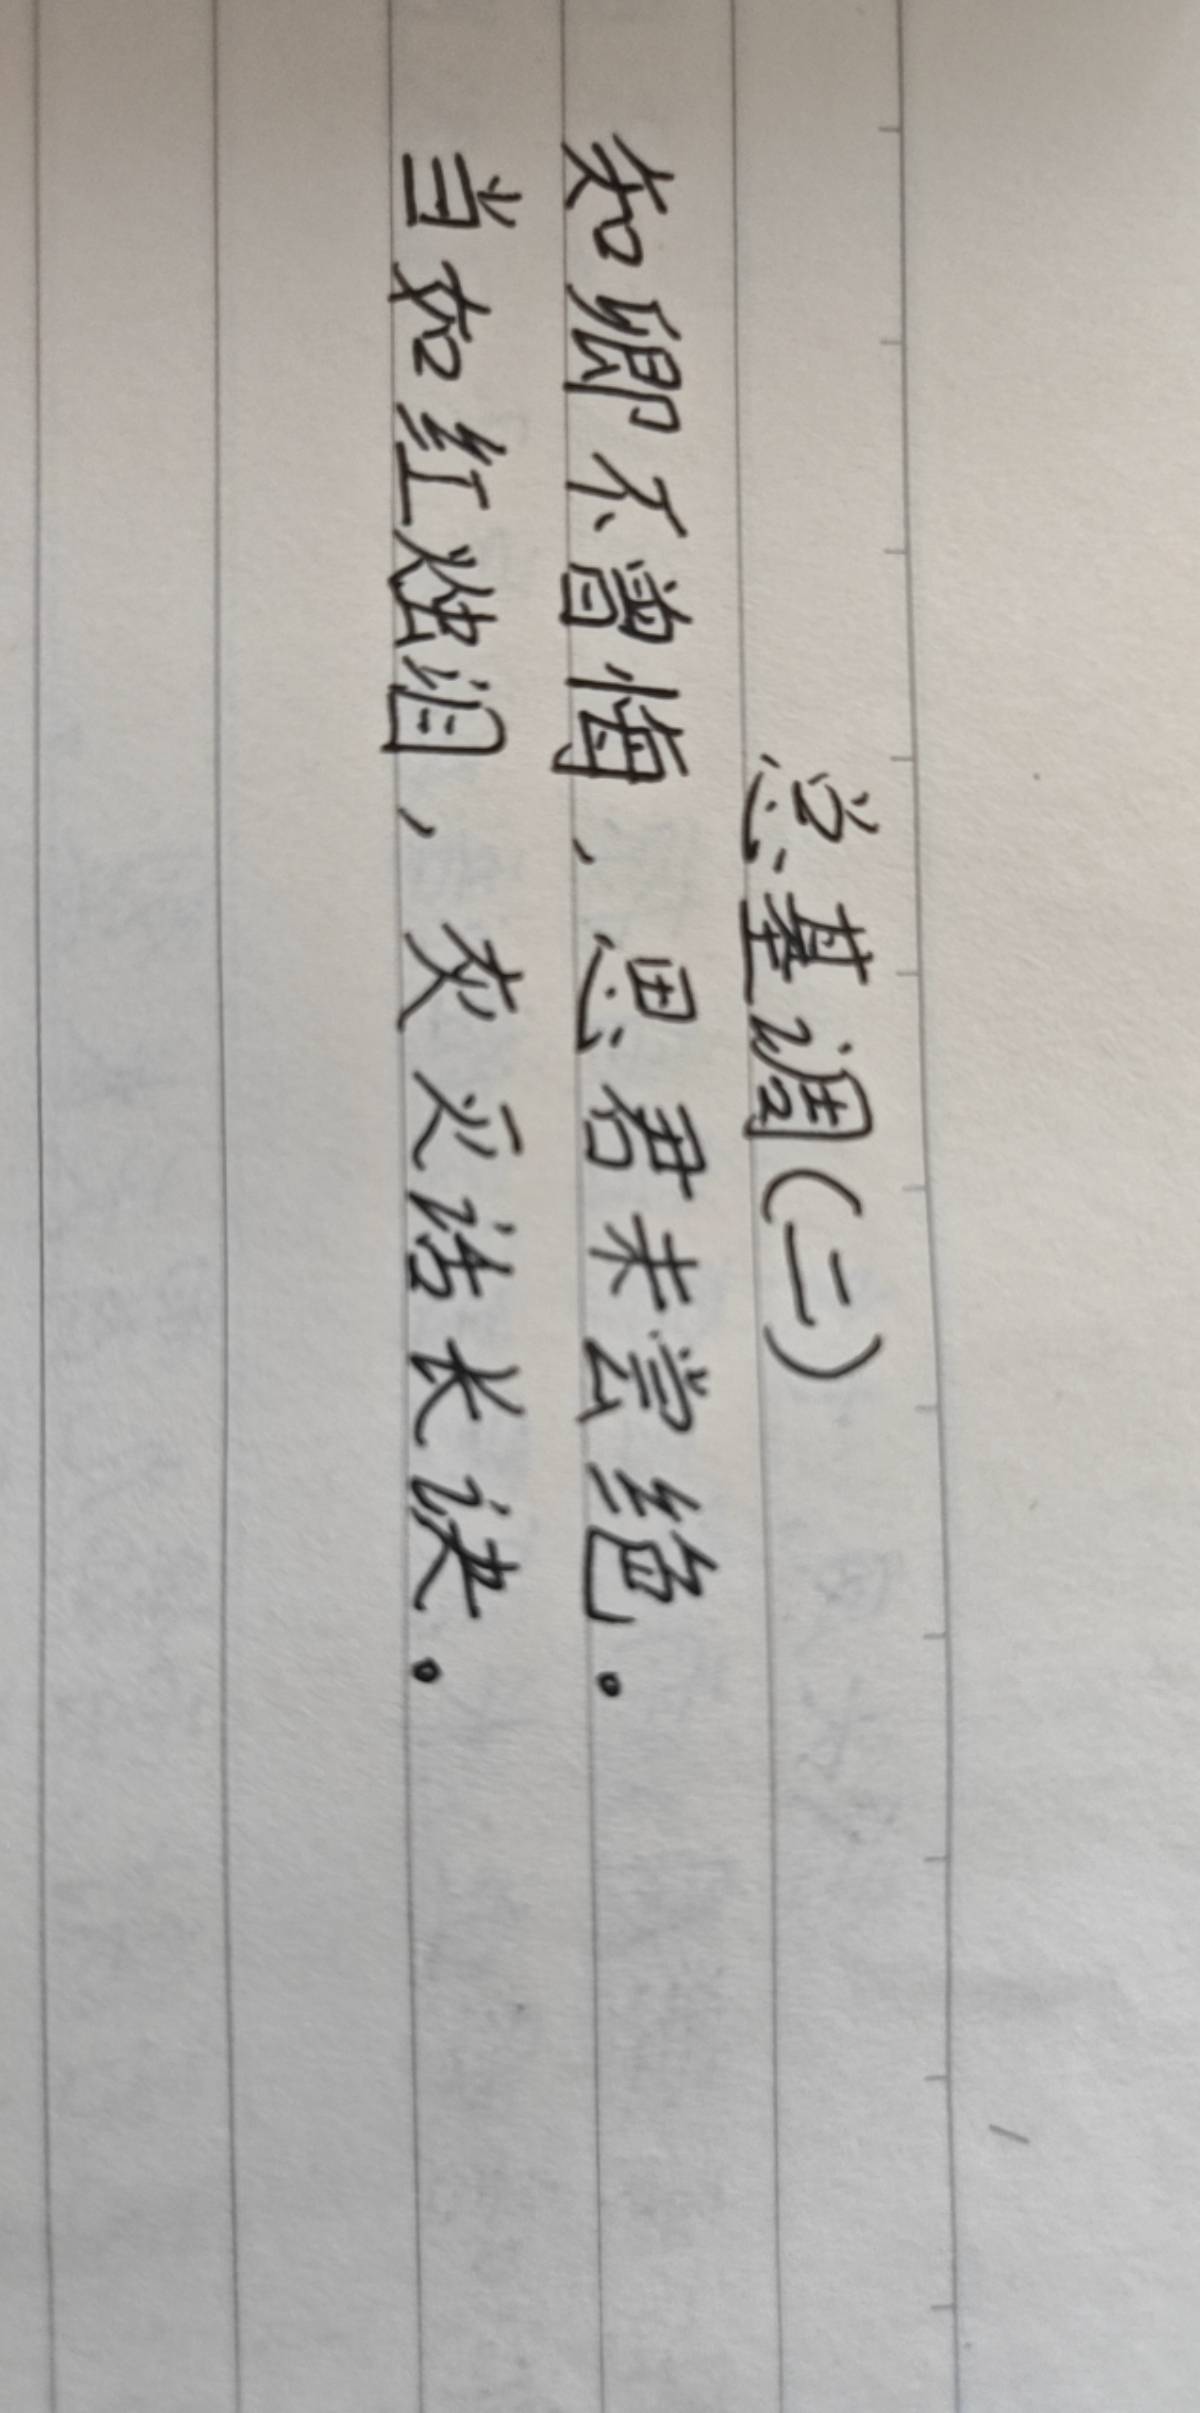 总基调(二)
知卿不曾悔,思君未尝绝.
当如红烛泪,灰灭话长诀.